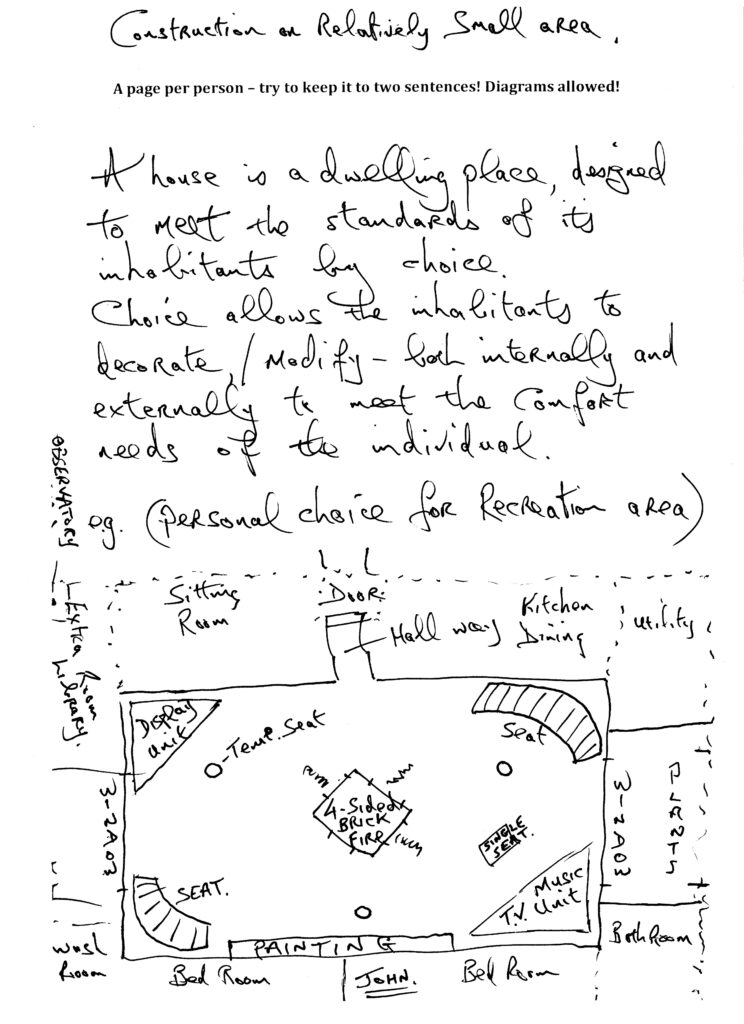 Construction on Relatively Small area.
A page per person – try to keep it to two sentences! Diagrams allowed!
A house is a dwelling place, designed
to meet the standards of its
inhabitants by choice.
Choice allows the inhabitants to
decorate, / Modify – both internally and
externally to meet the Comfort
needs of the individual.
e.g. (personal choice for Recreation area)
OBSERVATORY
Extra Room
Library.
Sitting
Room
DOOR
Hall way
Kitchen
Dining
Utility
Display
Unit
Temp. Seat
Seat
4-Sided
BRICK
FIRE
SINGLE
SEAT.
SEAT.
Music
T.V. Unit
PAINTING
Wash
Room
Bed Room
JOHN.
Bed Room
Bath Room